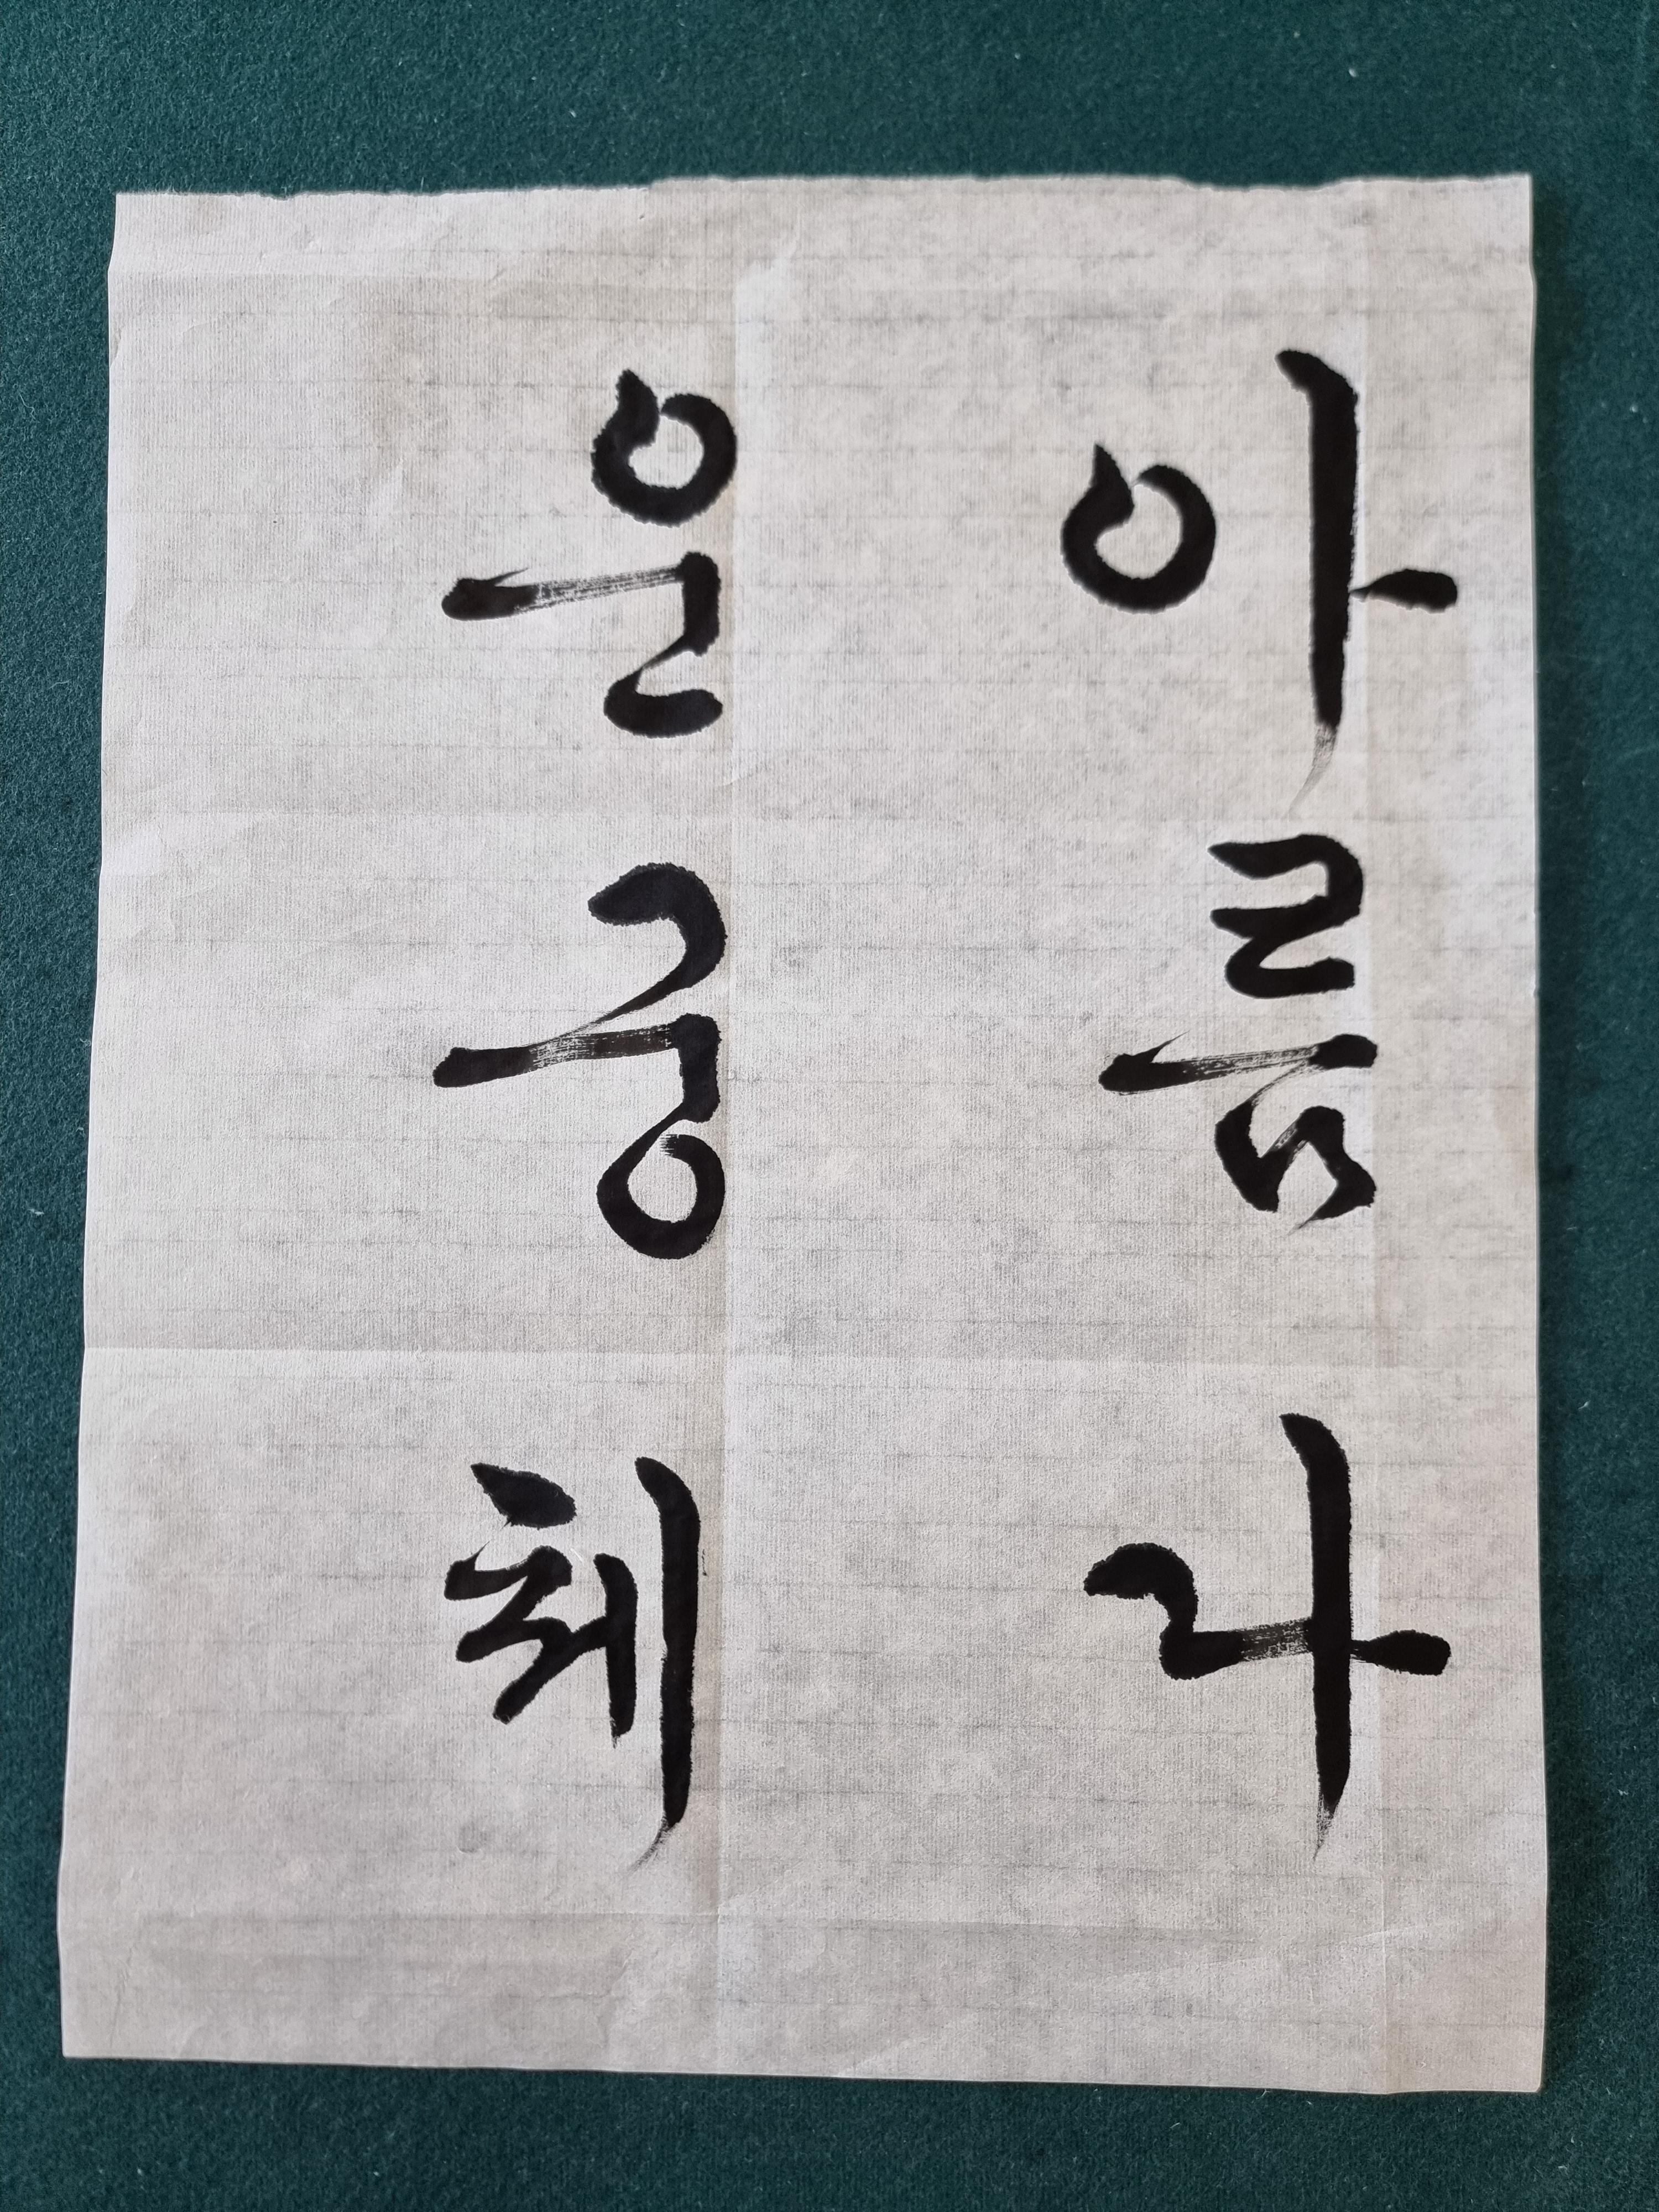 아름다
운궁체